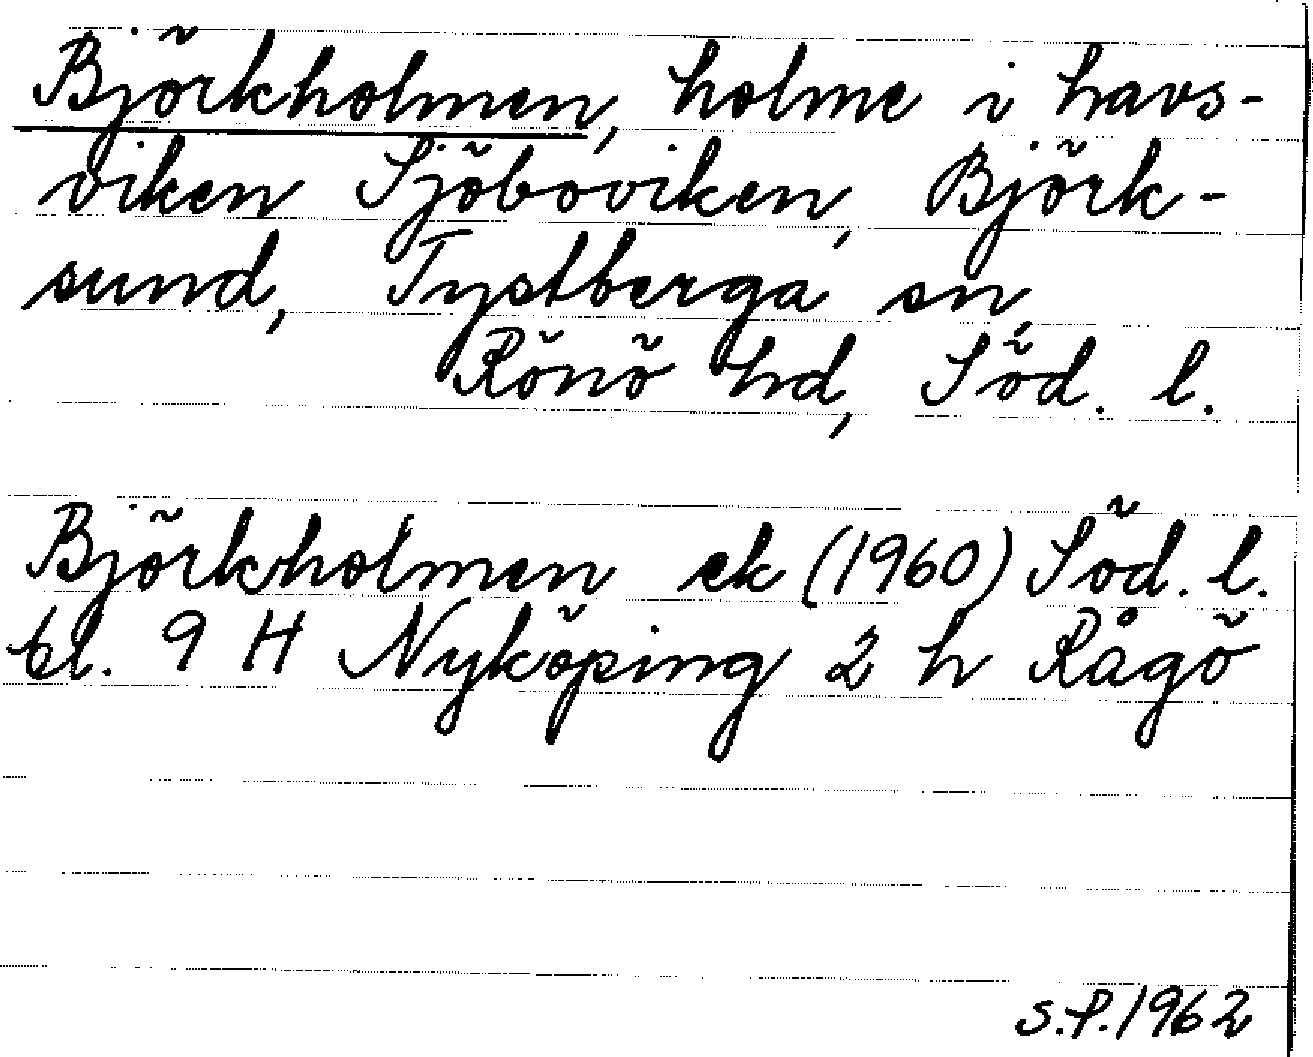 Björkholmen, holme i havs-
viken Sjöboviken, Björk-
sund, Tystberga sn,
Rönö hd, Söd. l.
Björkholmen ek (1960) Söd. l.
bl. 9 H Nyköping 2 h Rågö
S.P. 1962